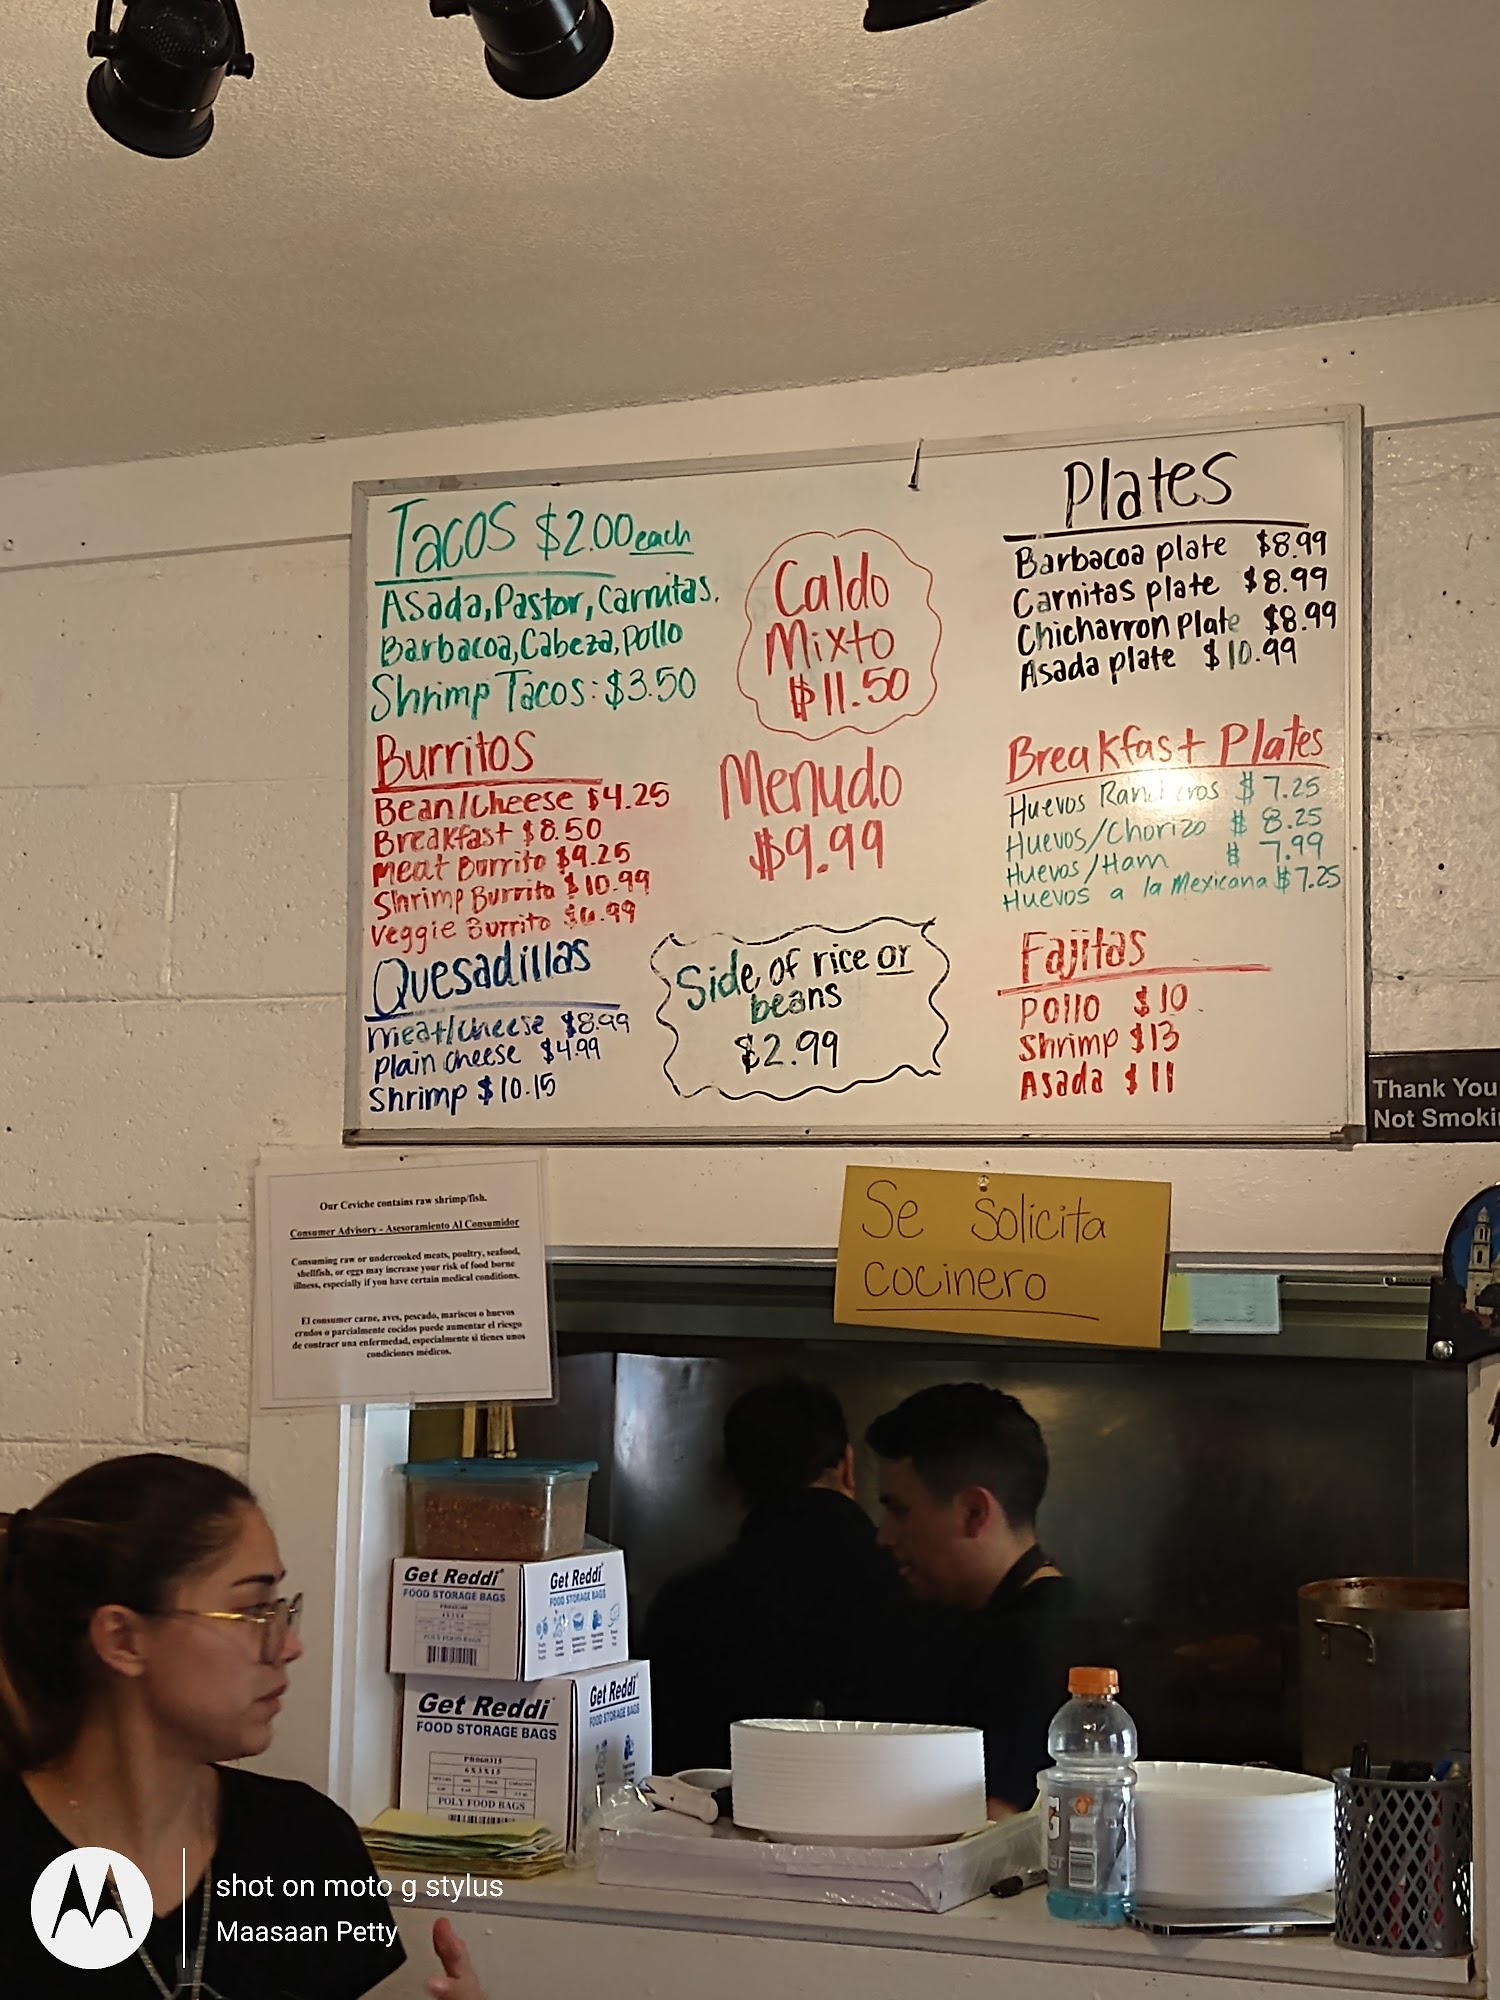 Tacos $2.00 each
Asada, Pastor, Carnitas,
Barbacoa, Cabeza, Pollo
Shrimp Tacos: $3.50
Burritos
Bean/Cheese $4.25
Breakfast $8.50
Meat Burrito $9.25
Shrimp Burrito $10.99
Veggie Burrito $6.99
Quesadillas
meat/cheese $8.99
Plain cheese $4.99
Shrimp $10.15
Caldo
Mixto
$11.50
Menudo
$9.99
Side of rice or
beans
$2.99
Plates
Barbacoa plate $8.99
Carnitas plate $8.99
Chicharron Plate $8.99
Asada plate $10.99
Breakfast Plates
Huevos Rancheros $7.25
Huevos/Chorizo $8.25
Huevos/Ham $7.99
Huevos a la Mexicana $7.25
Fajitas
Pollo $10
Shrimp $13
Asada $11
Thank You
Not Smoki
Our Ceviche contains raw shrimp/fish.
Consumer Advisory - Asesoramiento Al Consumidor
Consuming raw or undercooked meats, poultry, seafood,
shellfish, or eggs may increase your risk of food borne
illness, especially if you have certain medical conditions.
El consumer carne, aves, pescado, mariscos o huevos
crudos o parcialmente cocidos puede aumentar el riesgo
de contraer una enfermedad, especialmente si tienes unos
condiciones médicos.
Se Solicita
cocinero
Get Reddi
FOOD STORAGE BAGS
POLY FOOD BAGS
Get Reddi
Get Reddi
FOOD STORAGE BAGS
6X3X15
POLY FOOD BAGS
Get Reddi
G
shot on moto g stylus
Maasaan Petty